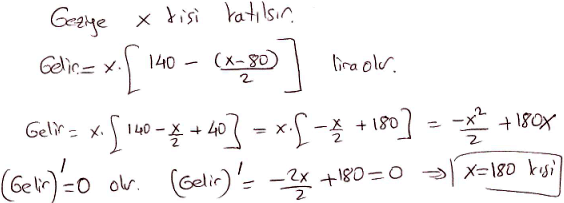 Geziye x kişi katılsın.
Gelir = x·[140 - (x-80)/2] lira olur.
Gelir = x·[140 - x/2 + 40] = x·[-x/2 + 180] = -x²/2 + 180x
(Gelir)' = 0 olur. (Gelir)' = -2x/2 + 180 = 0 ⇒ x = 180 kişi